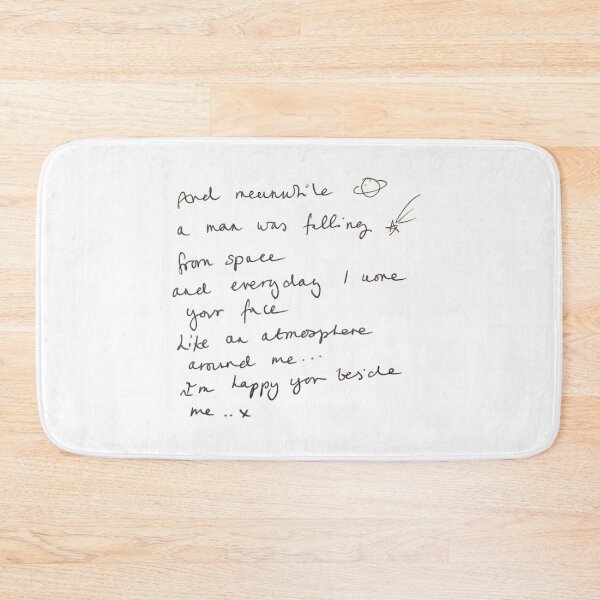 And meanwhile
a man was falling
from space
and everyday I wore
your face
Like an atmosphere
around me...
I'm happy you beside
me..x